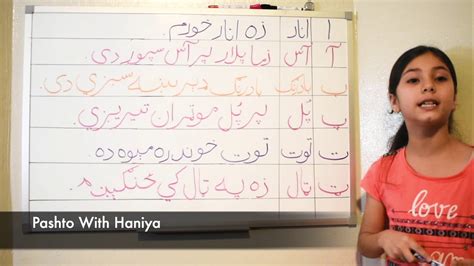 ا انار زه انار خورم.
آ آس زما پلار پر آس سپور دی.
ب بادرنګ بادرنګ سبزي دی.
پ پُل پر پُل موټران تیریږي.
ت توت توت خوندوره میوه ده.
ټ ټال زه په ټال کي ځنګیږم.
Pashto With Haniya